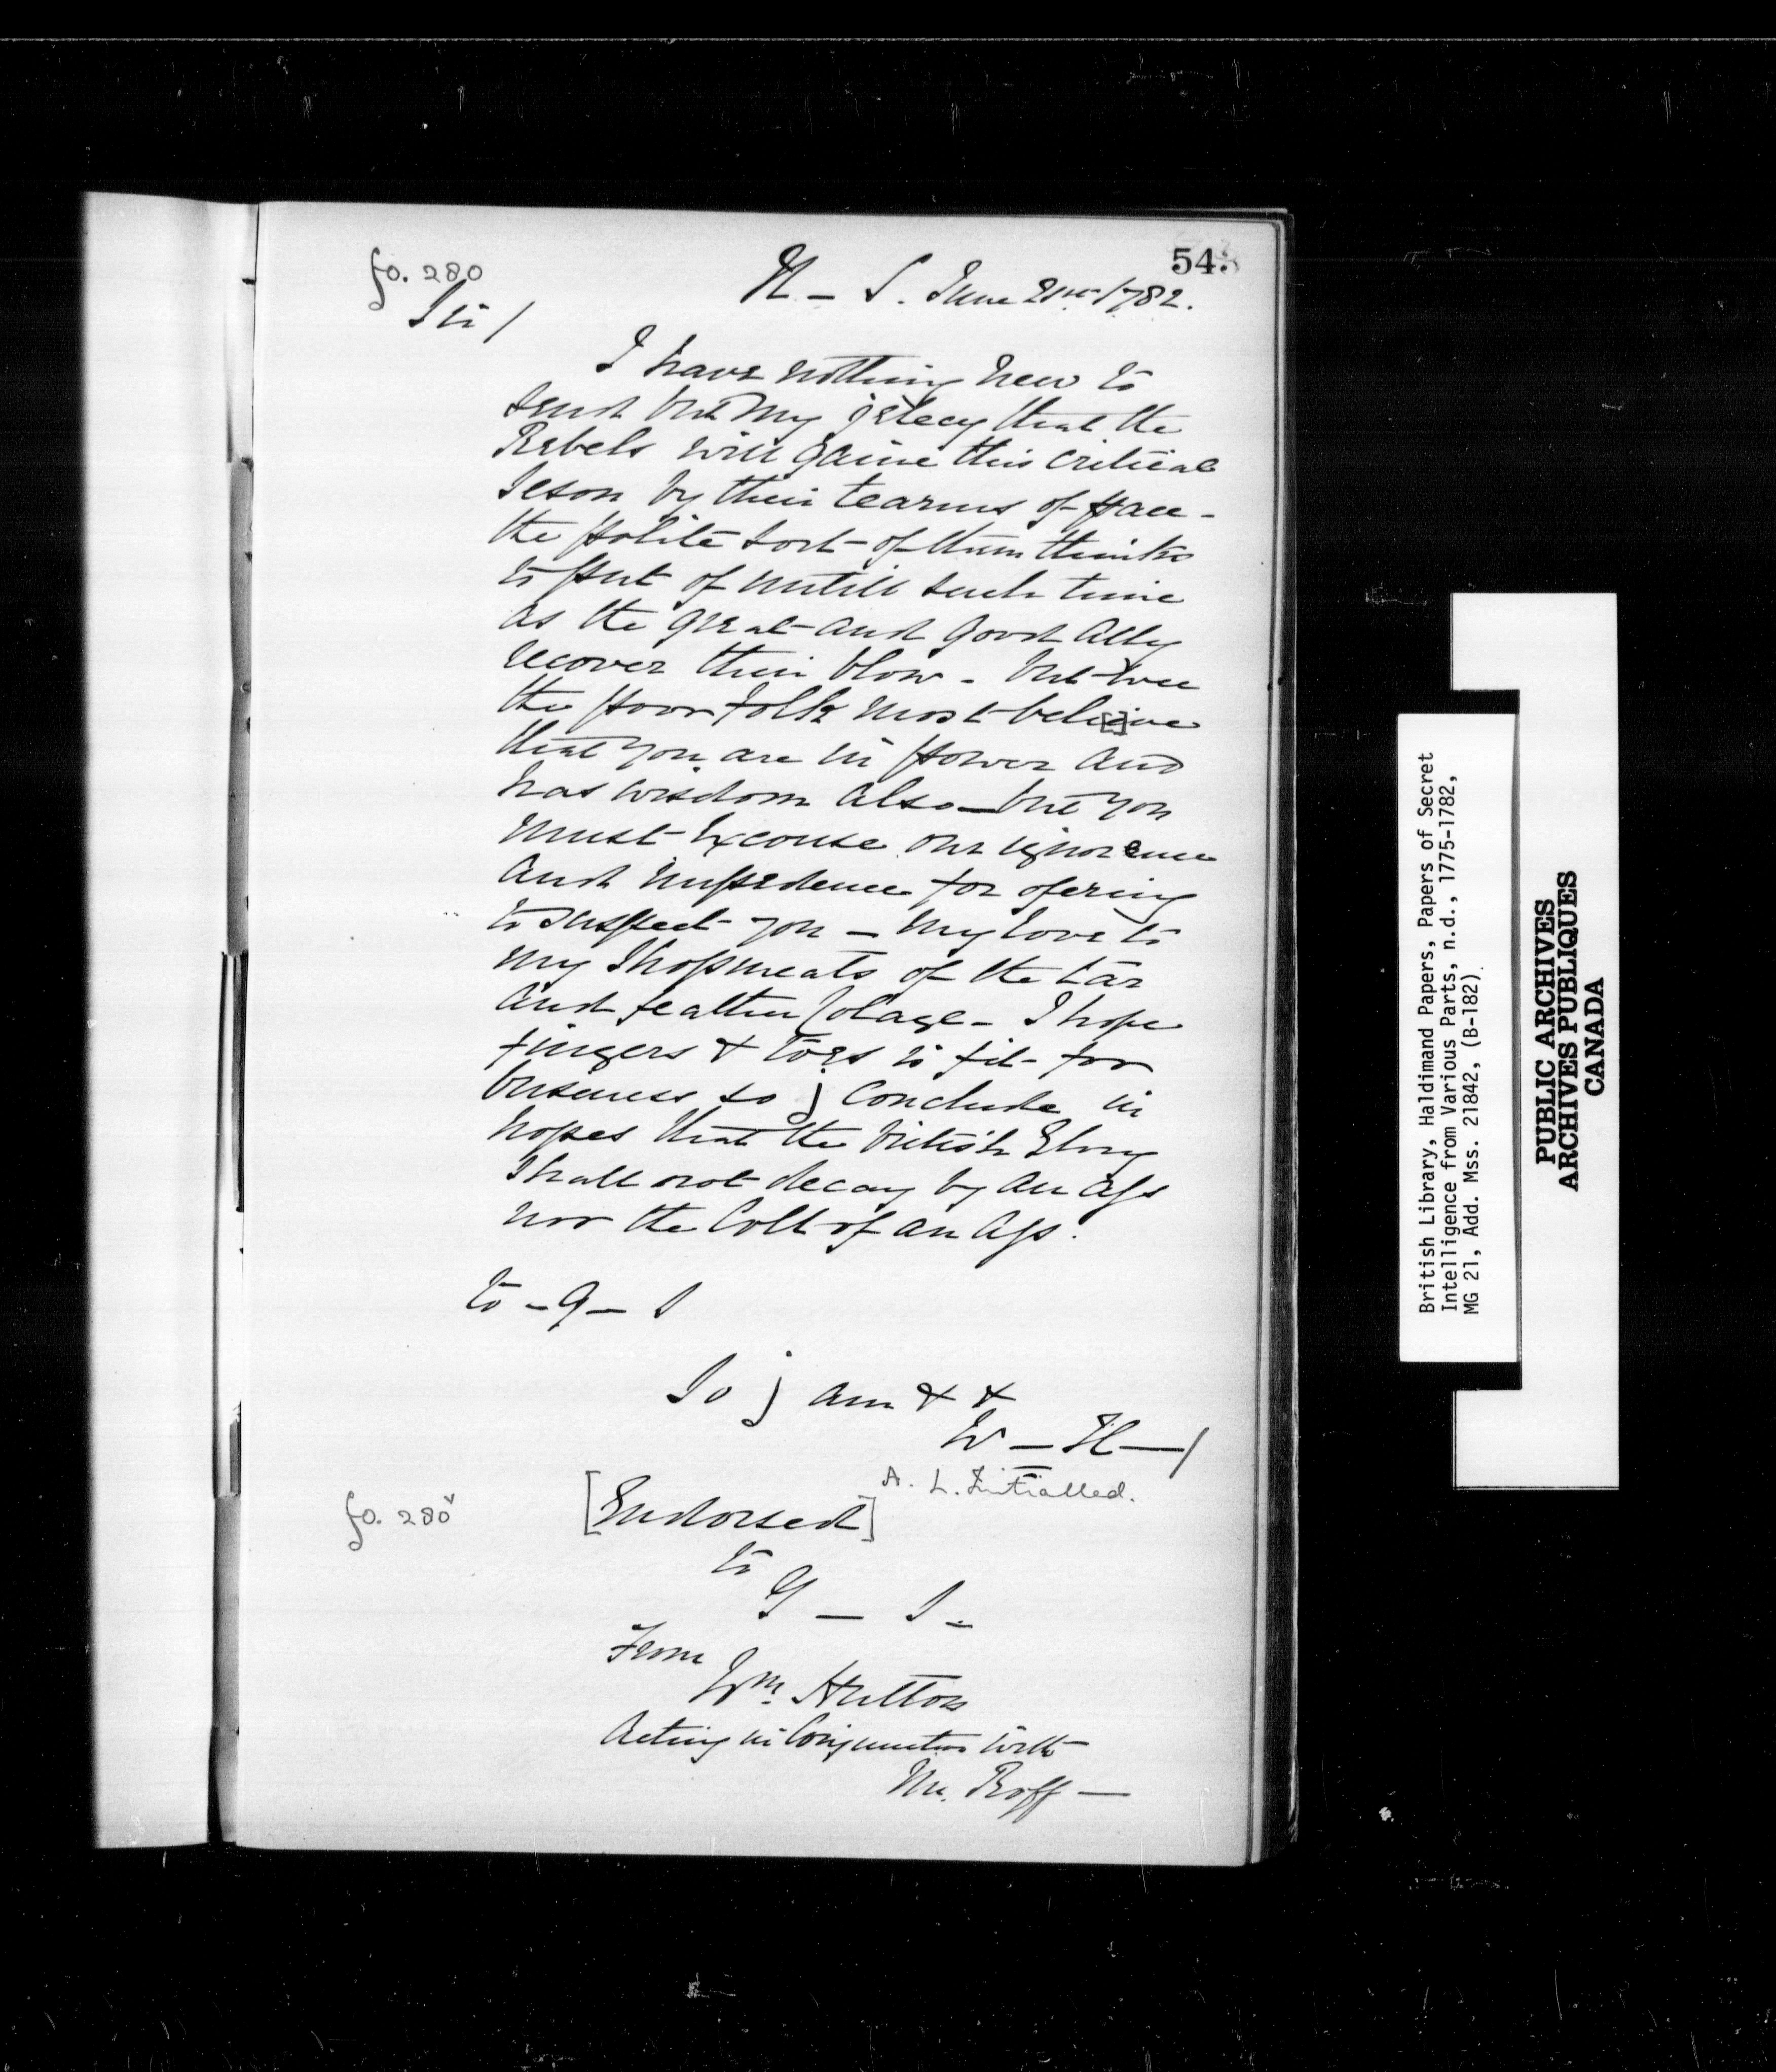 54.
fo. 280
N - S. June 21st 1782.
Sir /
I have nothing new to
send but my jelecy that the
Rebels will gaine this critical
Seson by their tearms of pace -
the polite sort of them thinks
to put of untill such time
as the great and good Ally
recover their blow - but wee
the poor folk most beli[e]ve
that you are in power and
has wisdom also - but you
must Excouse our ignorence
and impedence for ofering
to suspect you - my love to
my Shopmeats of the tar
and feather Colage - I hope
fingers & toes is fit for
business so j conclude in
hopes that the british Glory
Shall not decay by an Ass
nor the Colt of an Ass.
to - G - S
So j am & &
W - H - /
A. L. Initialled.
fo. 280v
[Endorsed]
to
G - S -
From
Wm. Hutton
Acting in Conjunction with
Mr. Roff -
British Library, Haldimand Papers, Papers of Secret
Intelligence from Various Parts, n.d., 1775-1782,
MG 21, Add. Mss. 21842, (B-182)
PUBLIC ARCHIVES
ARCHIVES PUBLIQUES
CANADA